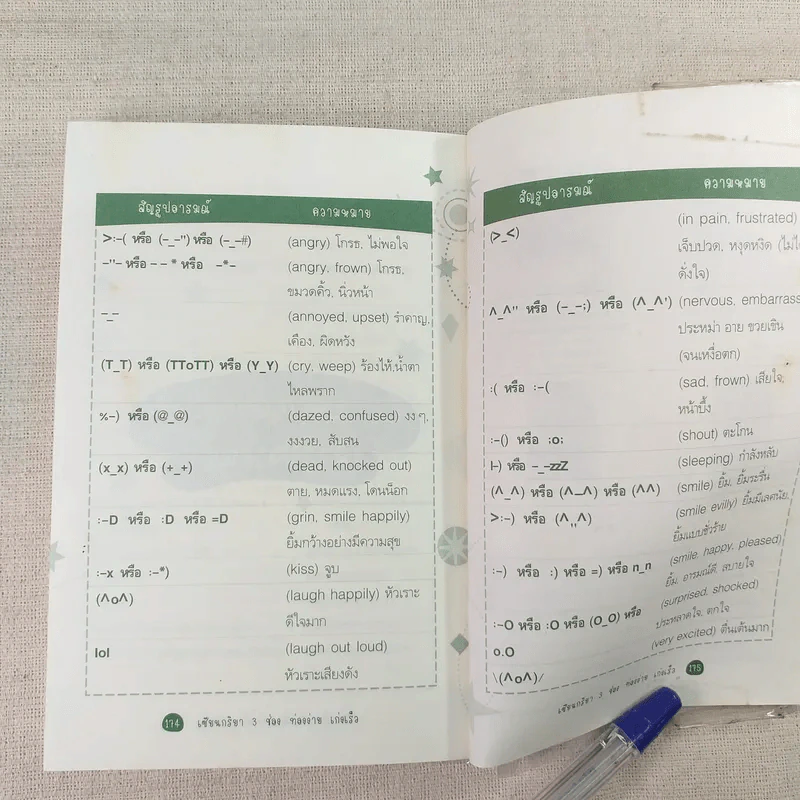 สัญรูปอารมณ์ ความหมาย
>:-( หรือ (-_-") หรือ (-_-#) (angry) โกรธ, ไม่พอใจ
-"- หรือ - - * หรือ -*- (angry, frown) โกรธ,
ขมวดคิ้ว, นิ่วหน้า
-_- (annoyed, upset) รำคาญ,
เคือง, ผิดหวัง
(T_T) หรือ (TToTT) หรือ (Y_Y) (cry, weep) ร้องไห้,น้ำตา
ไหลพราก
%-) หรือ (@_@) (dazed, confused) งง ๆ,
งงงวย, สับสน
(x_x) หรือ (+_+) (dead, knocked out)
ตาย, หมดแรง, โดนน็อก
:-D หรือ :D หรือ =D (grin, smile happily)
ยิ้มกว้างอย่างมีความสุข
:-x หรือ :-*) (kiss) จูบ
(^o^) (laugh happily) หัวเราะ
ดีใจมาก
lol (laugh out loud)
หัวเราะเสียงดัง
174 เซียนกริยา 3 ช่อง ท่องง่าย เก่งเร็ว
สัญรูปอารมณ์ ความหมาย
(>_<) (in pain, frustrated)
เจ็บปวด, หงุดหงิด
ดั่งใจ)
^_^" หรือ (-_-;) หรือ (^_^') (nervous, embarrass
ประหม่า อาย ขวยเขิน
(จนเหงื่อตก)
:( หรือ :-( (sad, frown) เสียใจ,
หน้าบึ้ง
:-() หรือ :o: (shout) ตะโกน
I-) หรือ -_-zzZ (sleeping) กำลังหลับ
(^_^) หรือ (^-^) หรือ (^^) (smile) ยิ้ม, ยิ้มระรื่น
>:-) หรือ (^,,^) (smile evilly) ยิ้มมีเลศนัย,
ยิ้มแบบชั่วร้าย
:-) หรือ :) หรือ =) หรือ n_n (smile, happy, pleased)
ยิ้ม, อารมณ์ดี, สบายใจ
:-O หรือ :O หรือ (O_O) หรือ (surprised, shocked)
o.O ประหลาดใจ, ตกใจ
\(^o^)/ (very excited) ตื่นเต้นมาก
เซียนกริยา 3 ช่อง ท่องง่าย เก่งเร็ว 175